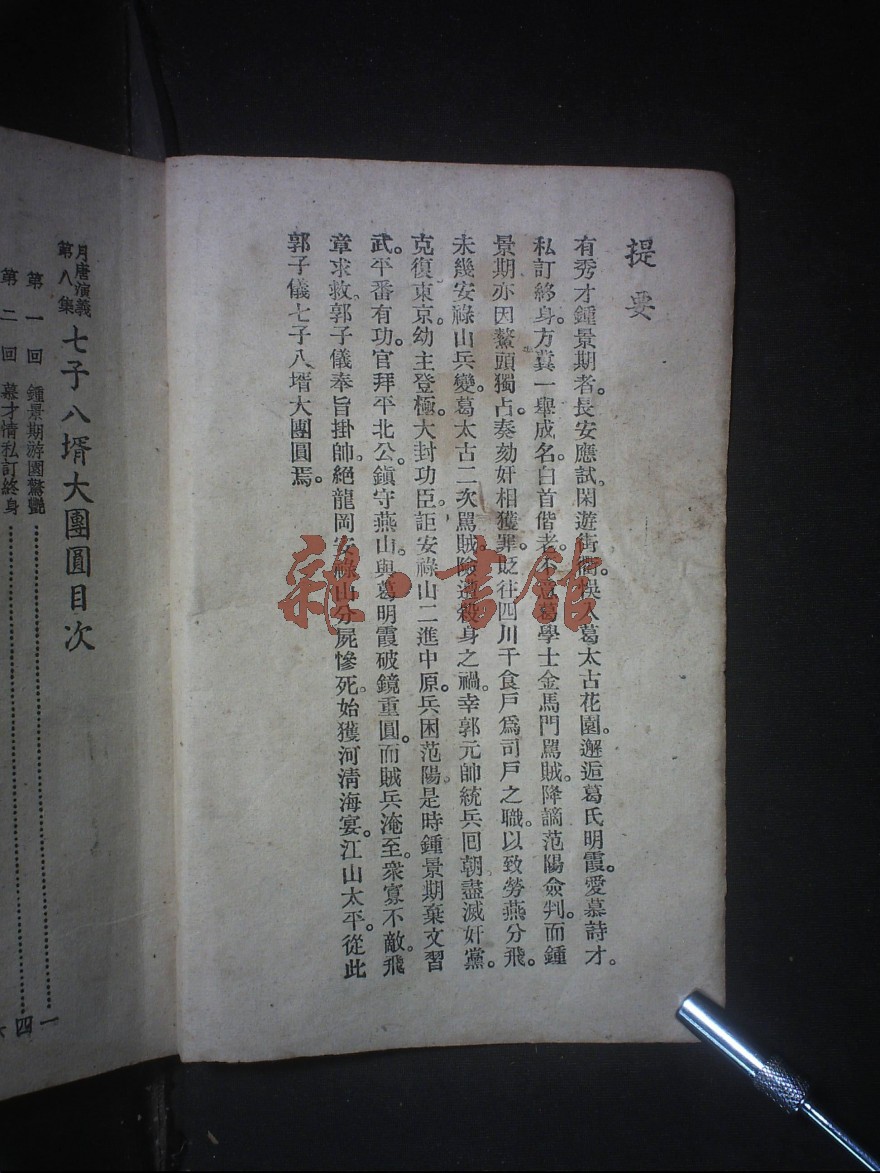 提要
有秀才鍾景期者。長安應試。閑遊街衢。誤入葛太古花園。邂逅葛氏明霞。愛慕詩才。
私訂終身。方冀一舉成名。白首偕老。不意葛學士金馬門罵賊。降謫范陽僉判。而鍾
景期亦因鰲頭獨占。奏劾奸相獲罪。貶往四川千食戶爲司戶之職。以致勞燕分飛。
未幾安祿山兵變。葛太古二次罵賊。險遭殺身之禍。幸郭元帥統兵囘朝。盡滅奸黨。
克復東京。幼主登極。大封功臣。詎安祿山二進中原。兵困范陽。是時鍾景期棄文習
武。平番有功。官拜平北公。鎭守燕山。與葛明霞破鏡重圓。而賊兵淹至。衆寡不敵。飛
章求救。郭子儀奉旨掛帥。絕龍岡安祿山分屍慘死。始獲河淸海宴。江山太平。從此
郭子儀七子八壻大團圓焉。
月唐演義
第八集
七子八壻大團圓目次
第一回 鍾景期游園驚艷……一
第二回 慕才情私訂終身……四
雜·書館